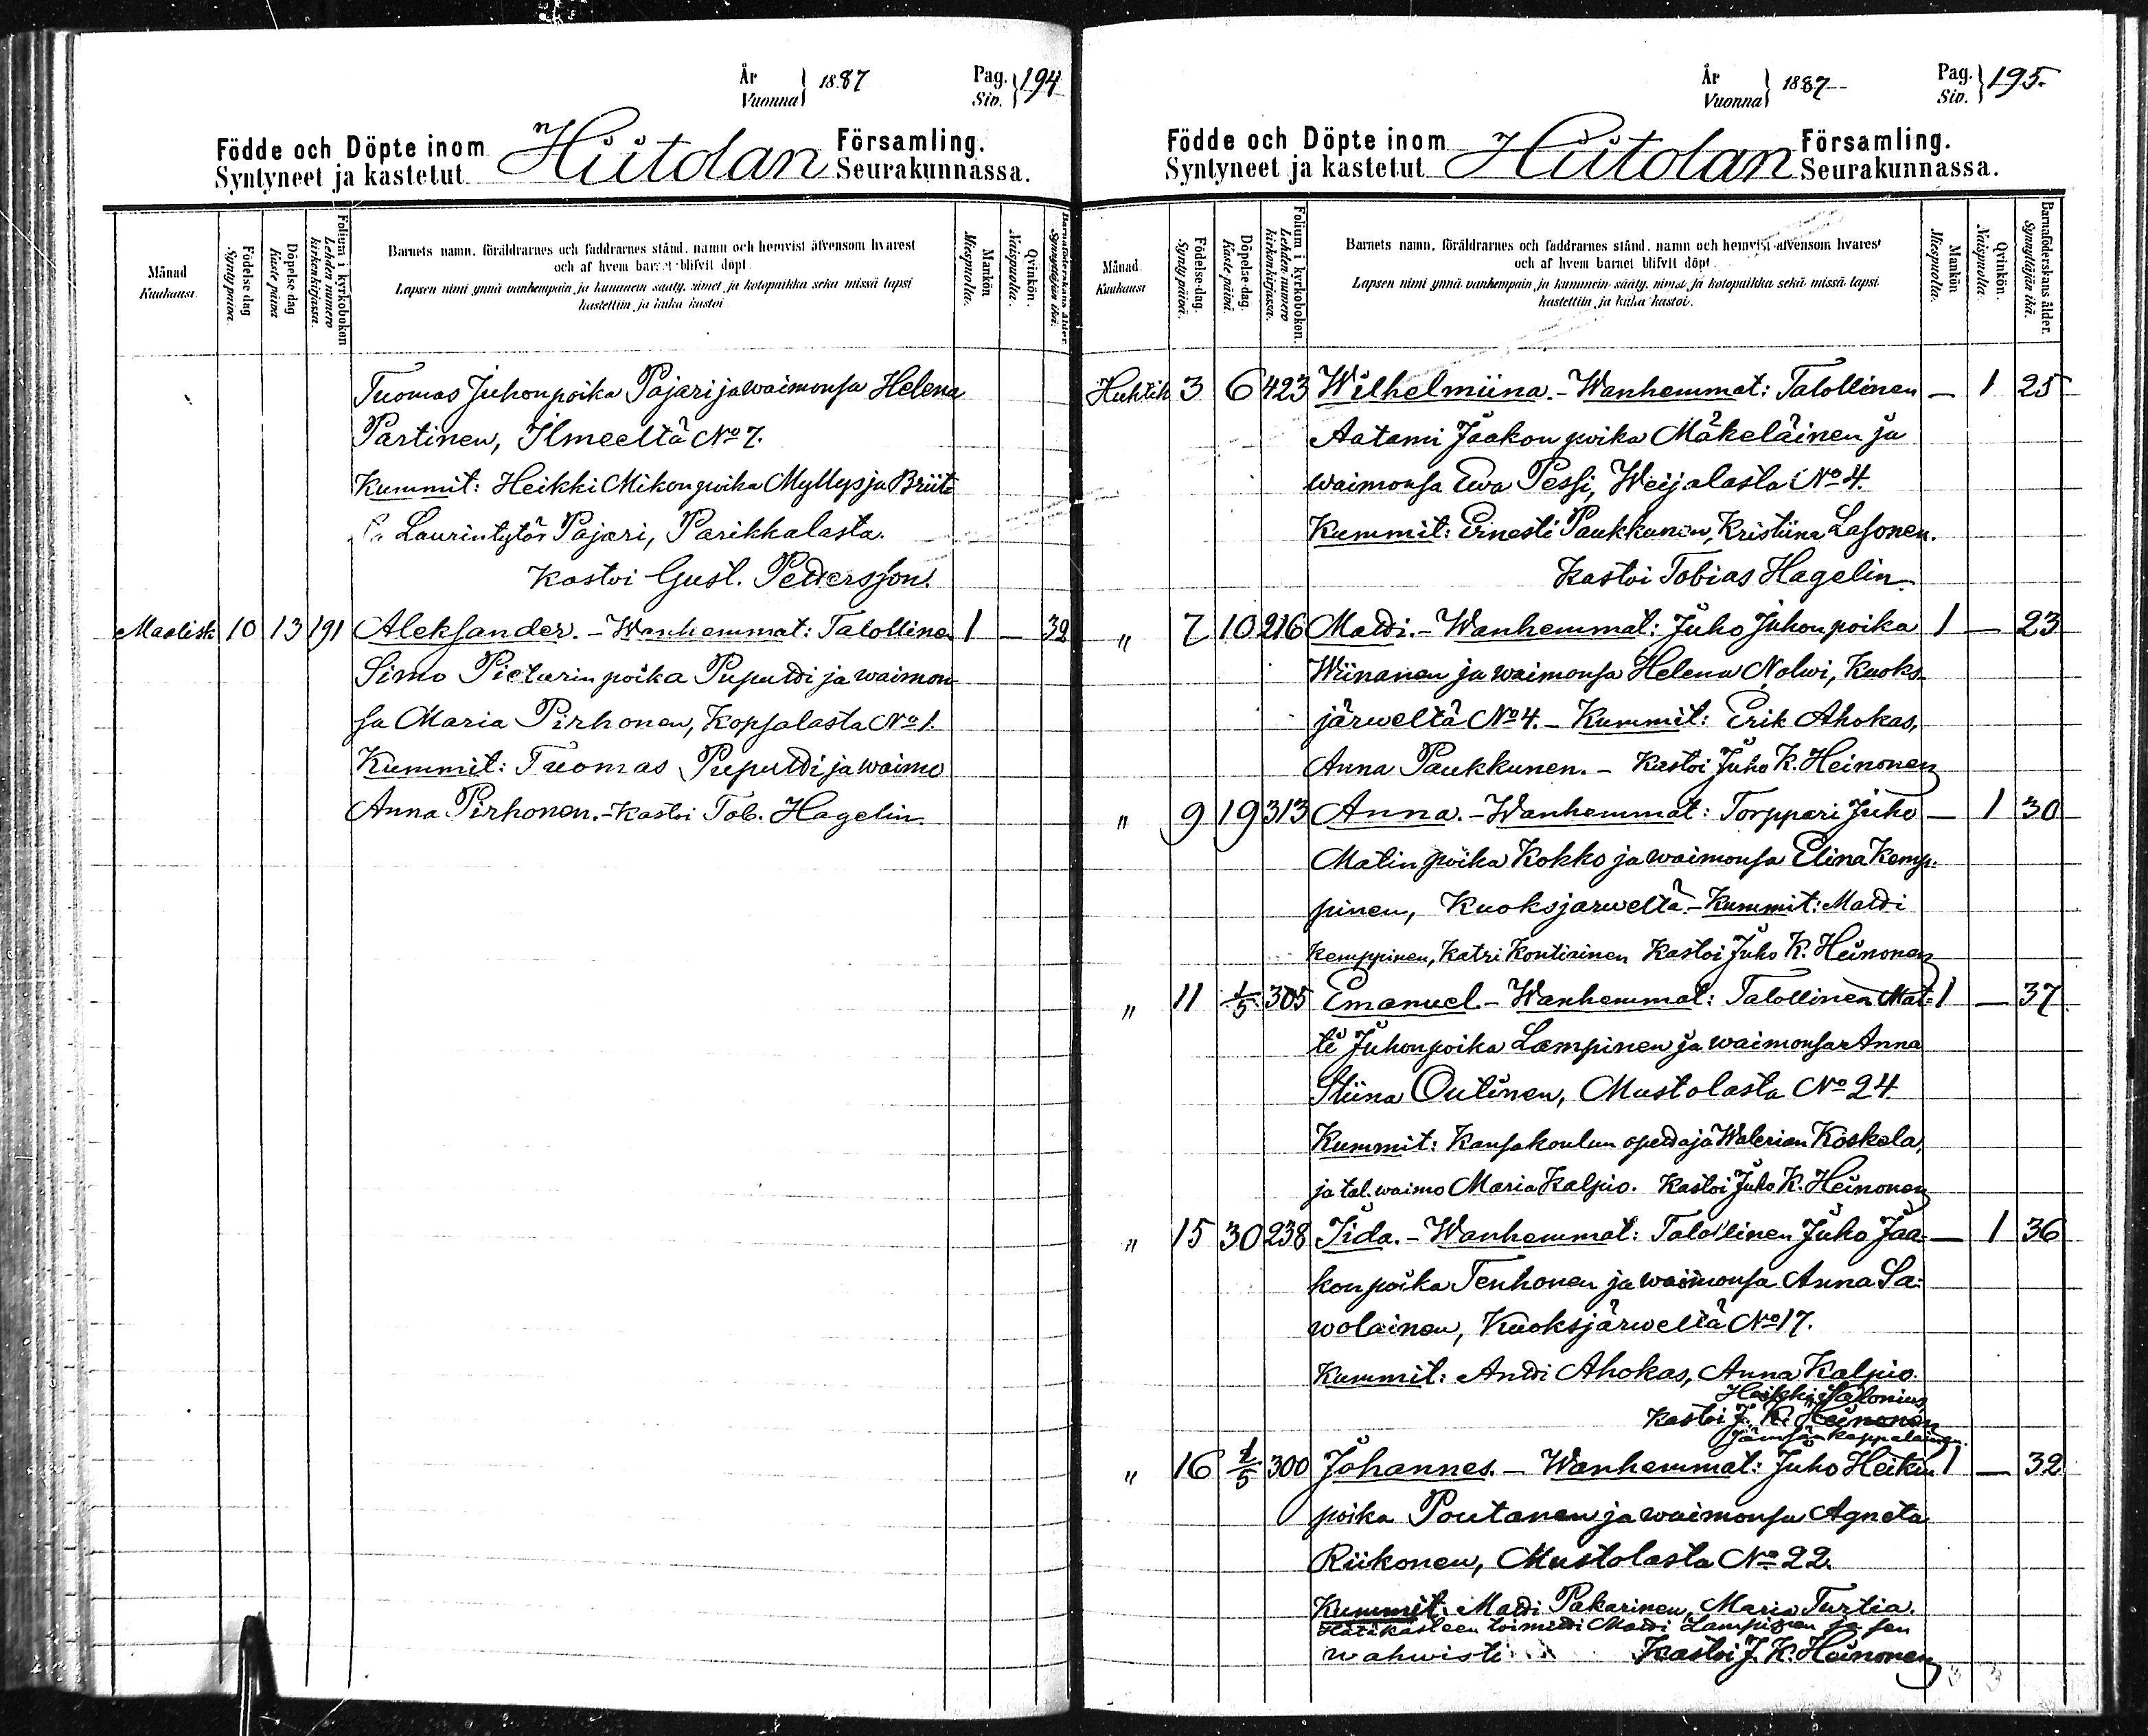 År Vuonna } 1887 Pag. Siv. } 194
Födde och Döpte inom Hiitolan Församling.
Syntyneet ja kastetut Seurakunnassa.
Månad Kuukausi.
Födelse-dag Synty päivä.
Döpelse-dag Kaste päivä
Folium i kyrkobokon Lehden numero kirkonkirjassa.
Barnets namn, föräldrarnes och faddrarnes stånd, namn och hemvist äfvensom hvarest
och af hvem barnet blifvit döpt
Lapsen nimi ynnä vanhempain ja kummein sääty, nimet ja kotopaikka sekä missä lapsi
kastettiin ja kuka kastoi
Mankön Miespuolia.
Qvinkön. Naispuolia.
Barnaföderskans ålder. Synnyttäjän ikä.
Tuomas Juhonpoika Pajari ja waimonsa Helena
Partinen, Ilmeeltä No 7.
Kummit: Heikki Mikonpoika Myllys ja Briita
Laurintytär Pajari, Parikkalasta.
Kastoi Gust. Pettersson.
Maalisk 10 13 191 Aleksander. - Wanhemmat: Talollinen 1 — 39
Simo Pieturin poika Puputti ja waimon
sa Maria Pirhonen, Kopsalasta No 1.
Kummit: Tuomas Puputti ja waimo
Anna Pirhonen. - Kastoi Tob. Hagelin.
År Vuonna } 1887 Pag. Siv. } 195.
Födde och Döpte inom Hiitolan Församling.
Syntyneet ja kastetut Seurakunnassa.
Månad Kuukausi
Födelse-dag. Synty päivä.
Döpelse-dag. Kaste päivä.
Folium i kyrkobokon. Lehden numero kirkonkirjassa.
Barnets namn, föräldrarnes och faddrarnes stånd, namn och hemvist äfvensom hvarest
och af hvem barnet blifvit döpt.
Lapsen nimi ynnä vanhempain ja kummein sääty, nimet ja kotopaikka sekä missä lapsi
kastettiin ja kuka kastoi.
Mankön Miespuolia.
Qvinkön. Naispuolia.
Barnaföderskans ålder. Synnyttäjän ikä.
Huhtik 3 6 423 Wilhelmiina. - Wanhemmat: Talollinen — 1 25
Aatami Jaakon poika Mäkeläinen ja
waimonsa Ewa Pessi, Weijalasta No 4.
Kummit: Ernesti Paukkunen, Kristiina Lasonen.
Kastoi Tobias Hagelin.
" 7 10 216 Matti. - Wanhemmat: Juho Juhonpoika 1 — 23
Wiinanen ja waimonsa Helena Nolwi, Kuoks-
järweltä No 4. - Kummit: Erik Ahokas,
Anna Paukkunen. - Kastoi Juho K. Heinonen
" 9 19 313 Anna. - Wanhemmat: Torppari Juho — 1 30
Matin poika Kokko ja waimonsa Elina Kemp-
pinen, Kuoksjärweltä. - Kummit: Matti
Kemppinen, Katri Kontiainen Kastoi Juho K. Heinonen
" 11 1/5 305 Emanuel. - Wanhemmat: Talollinen Mat- 1 — 37
ti Juhonpoika Lampinen ja waimonsa Anna
Stiina Outinen, Mustolasta No 24.
Kummit: Kansakoulun opettaja Walerian Koskela,
ja tal. waimo Maria Kalpio. Kastoi Juho K. Heinonen
" 15 30 238 Iida. - Wanhemmat: Talollinen Juho Jaa- — 1 36
kon poika Tenhonen ja waimonsa Anna Sa-
wolainen, Kuoksjärweltä No 17.
Kummit: Antti Ahokas, Anna Kalpio.
Heikki Salonius,
Kastoi J. K. Heinonen
Jämsän kappalainen.
" 16 1/5 300 Johannes. - Wanhemmat: Juho Heikin 1 — 32
poika Poutanen ja waimonsa Agneta
Riikonen, Mustolasta No 22.
Kummit: Matti Pakarinen, Maria Turtia.
Hätäkasteen toimitti Matti Lampinen ja sen
wahwisti Kastoi J. K. Heinonen